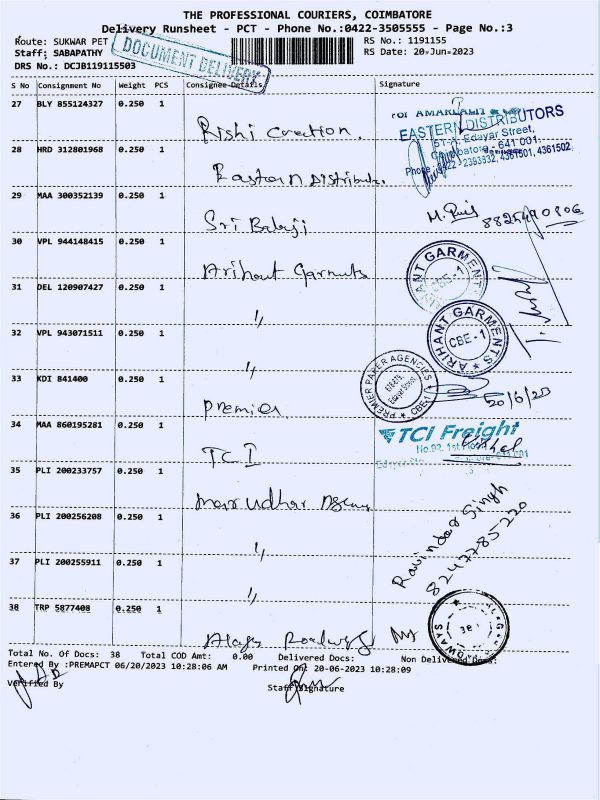 THE PROFESSIONAL COURIERS, COIMBATORE
Delivery Runsheet - PCT - Phone No.:0422-3505555 - Page No.:3
Route: SUKWAR PET
RS No.: 1191155
Staff: SABAPATHY
RS Date: 20-Jun-2023
DRS No.: DCJB119115503
DOCUMENT DELIVERY
S No Consignment No Weight PCS Consignee Details Signature
27 BLY 855124327 0.250 1
Rishi Creation.
EASTERN DISTRIBUTORS
57-A, Edayar Street,
Coimbatore - 641 001.
Phone: 0422 - 2393932, 4361501, 4361502
28 HRD 312801968 0.250 1
Eastern Distributo
29 MAA 300352139 0.250 1
Sri Balaji
30 VPL 944148415 0.250 1
Arihant Garments
ARIHANT GARMENTS
CBE-1
31 DEL 120907427 0.250 1
"
ARIHANT GARMENTS
CBE-1
32 VPL 943071511 0.250 1
"
PREMIER PAPER AGENCIES
Edayar Street
CBE-1
33 KDI 841400 0.250 1
Premier
20/6/23
34 MAA 860195281 0.250 1
TCI
TCI Freight
No.92, 1st Floor
35 PLI 200233757 0.250 1
Marudhar Agency
Ravindar Singh
8247785220
36 PLI 200256208 0.250 1
"
37 PLI 200255911 0.250 1
"
38 TRP 5877408 0.250 1
Roadways
Total No. Of Docs: 38 Total COD Amt: 0.00 Delivered Docs: Non Delivered Docs:
Entered By :PREMAPCT 06/20/2023 10:28:06 AM Printed On: 20-06-2023 10:28:09
Verified By
Staff Signature